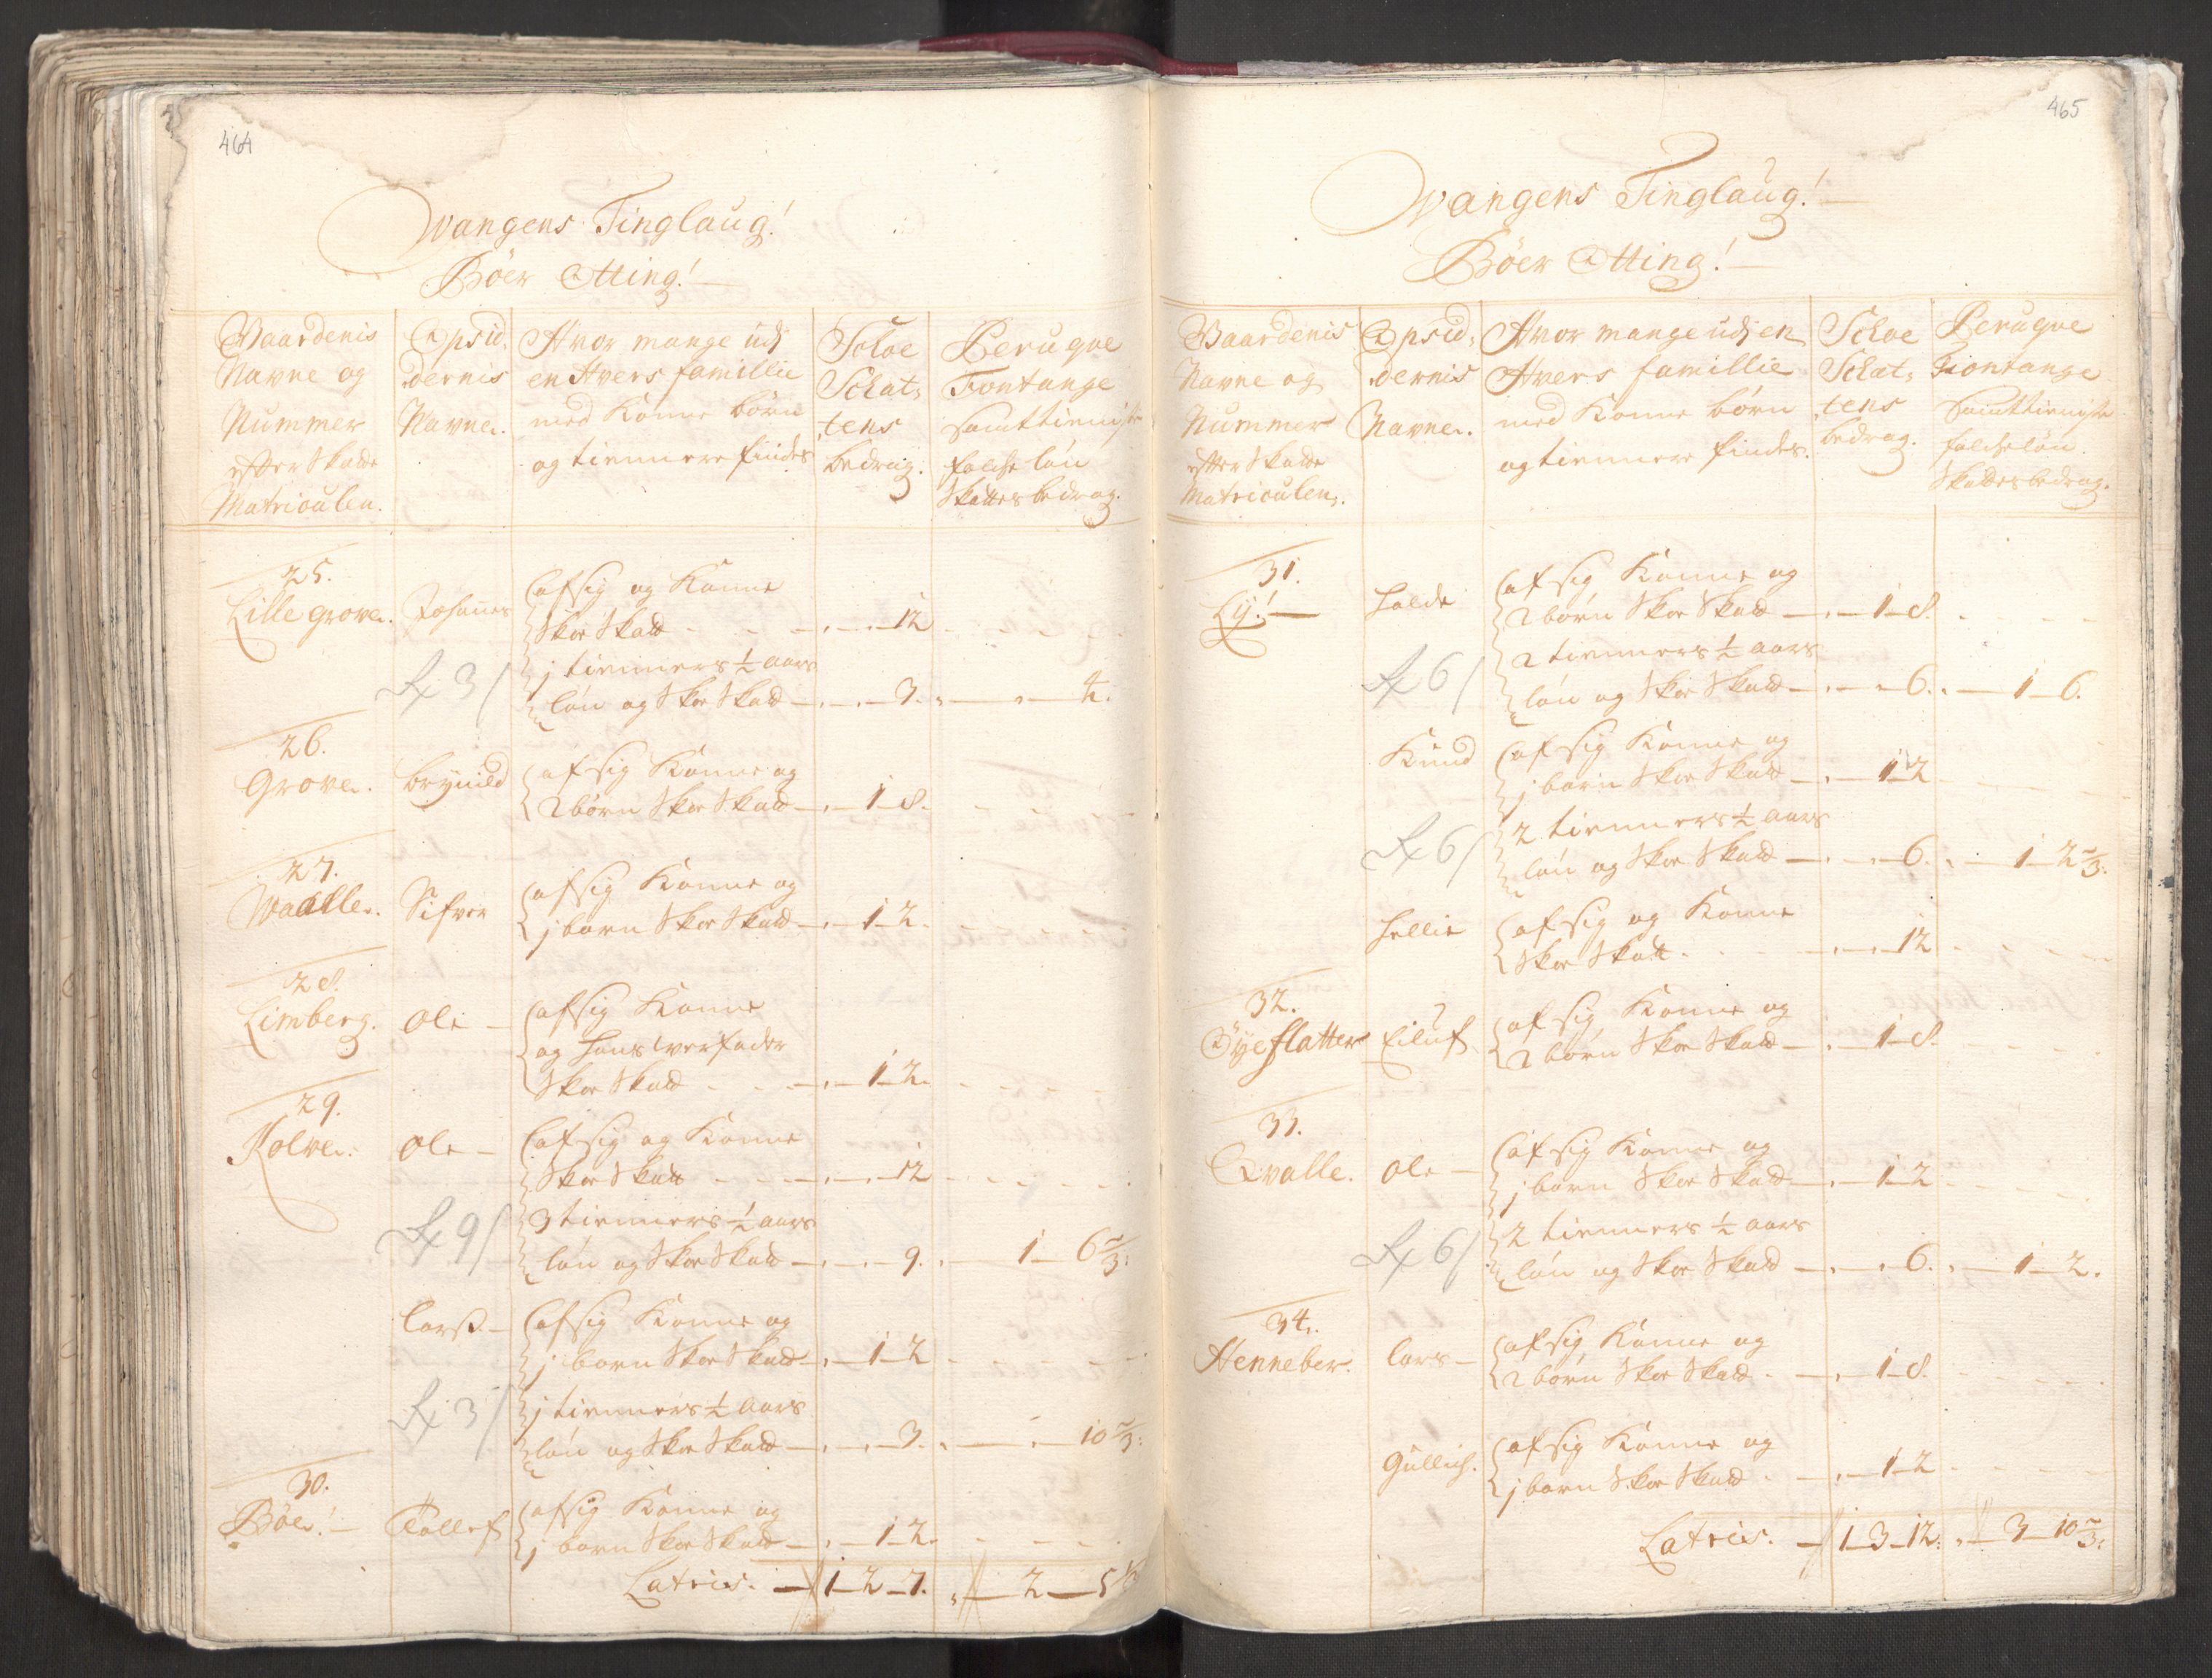 464
Wangens Tinglaug!
Böer Otting!
Gaardenis Navne og Nummer efter Skatte Matriculen.
Opsiddernis Navne.
Hvor mange udj en Hvers famillie med Konne børn og tiennere findes
Schoe Schattens bedrag.
Peruque Fontange samt tieniste folchs løn Skattes bedrag.
25.
Lille grove. Johanes afsig og Konne
Skoe Skatt - - - 12
Rx 3/ j tienners ½ aars
løn og Skoe Skatt - 3. - 4.
26.
Grove. Brynild af sig Konne og
2 børn Skoe Skatt - 1 - 8.
27.
Waalle. Sifver afsig Konne og
j barn Skoe Skatt - 1 - 2.
28.
Limberg. Ole - afsig Konne
og hans verfader
Skoe Skatt - - - 1 - 2.
29.
Kolve. Ole - afsig og Konne
Skoe Skatt - - - 12
Rx 9/ 3 tienners ½ aars
løn og Skoe Skatt - 9. - 1 - 6 2/3.
Larss - afsig Konne og
j barn Skoe Skatt - 1 - 2
Rx 3/ j tienners ½ aars
løn og Skoe Skatt - 3. - 10 2/3.
30.
Böe! - Tollef afsig Konne og
j barn Skoe Skatt - 1 - 2.
Latris. - 1 - 2 - 7. 2 - 5 1/3
465
Wangens Tinglaug!
Böer Otting!
Gaardenis Navne og Nummer efter Skatte Matriculen.
Opsiddernis Navne.
Hvor mange udj en Hvers famillie med Konne børn og tiennere findes.
Schoe Schattens bedrag.
Peruque Fontange samt tieniste folchs løn Skattes bedrag.
31.
Ly! - halde af sig Konne og
2 børn Skoe Skatt - 1 - 8.
Rx 6/ 2 tienners ½ aars
løn og Skoe Skatt - 6. - 1 - 6.
Knud af sig Konne og
j barn Skoe Skatt - 1 - 2
Rx 6/ 2 tienners ½ aars
løn og Skoe Skatt - 6. - 1 - 2 2/3.
hellie af sig og Konne
Skoe Skatt. - 12
32.
Öyeflatter Eiluf af sig Konne og
2 børn Skoe Skatt - 1 - 8.
33.
Qvalle. Ole - af sig Konne og
j barn Skoe Skatt - 1 - 2
Rx 6/ 2 tienners ½ aars
løn og Skoe Skatt - 6. - 1 - 2.
34.
Henneber. Lars - af sig Konne og
2 børn Skoe Skatt. - 1 - 8.
Gullich. af sig Konne og
j barn Skoe Skatt. - 1 - 2
Latris. - 1 - 3 - 12. 3 - 10 2/3.